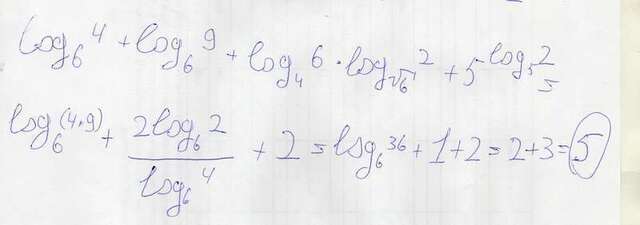 log₆4 + log₆9 + log₄6 · log_√6 2 + 5^log₅2
log₆(4·9) + (2log₆2)/(log₆4) + 2 = log₆36 + 1 + 2 = 2 + 3 = 5